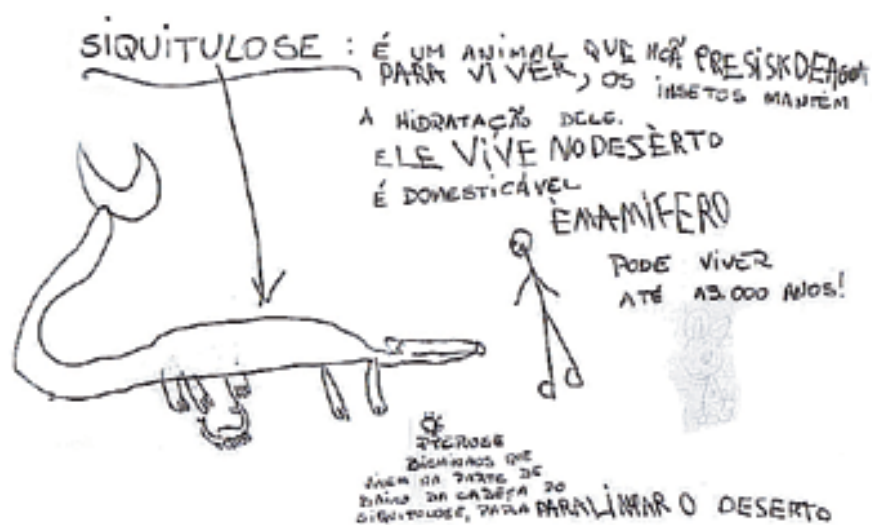 SIQUITULOSE : É UM ANIMAL QUE NÃO PRESISKDEAGUA
PARA VIVER, OS INSETOS MANTÉM
A HIDRATAÇÃO DELE.
ELE VIVE NO DESÈRTO
É DOMESTICÁVEL
ÈMAMÍFERO
PODE VIVER
ATÉ 13.000 ANOS!
BICHINHOS QUE
VIVEM NA PARTE DE
BAIXO DA CABEÇA DO
SIQUITULOSE, PARA PARALIMAR O DESERTO